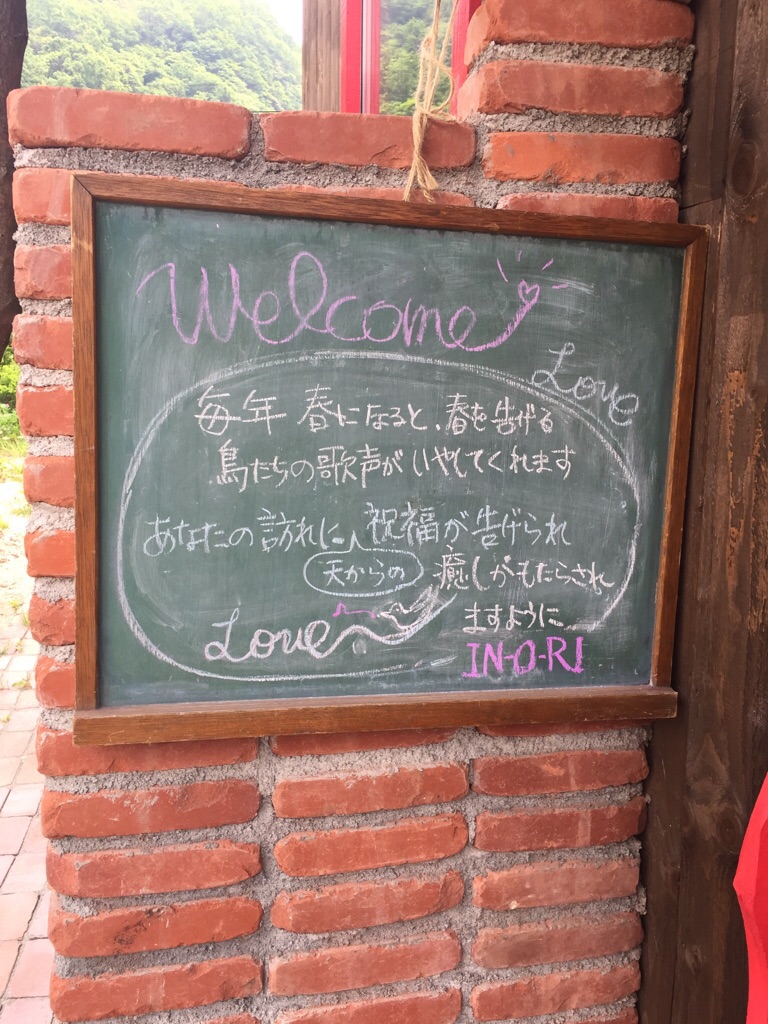 Welcome
Love
毎年 春になると、春を告げる
鳥たちの歌声がいやしてくれます
あなたの訪れに 祝福が告げられ
天からの 癒しがもたらされ
ますように
Love
IN-O-RI